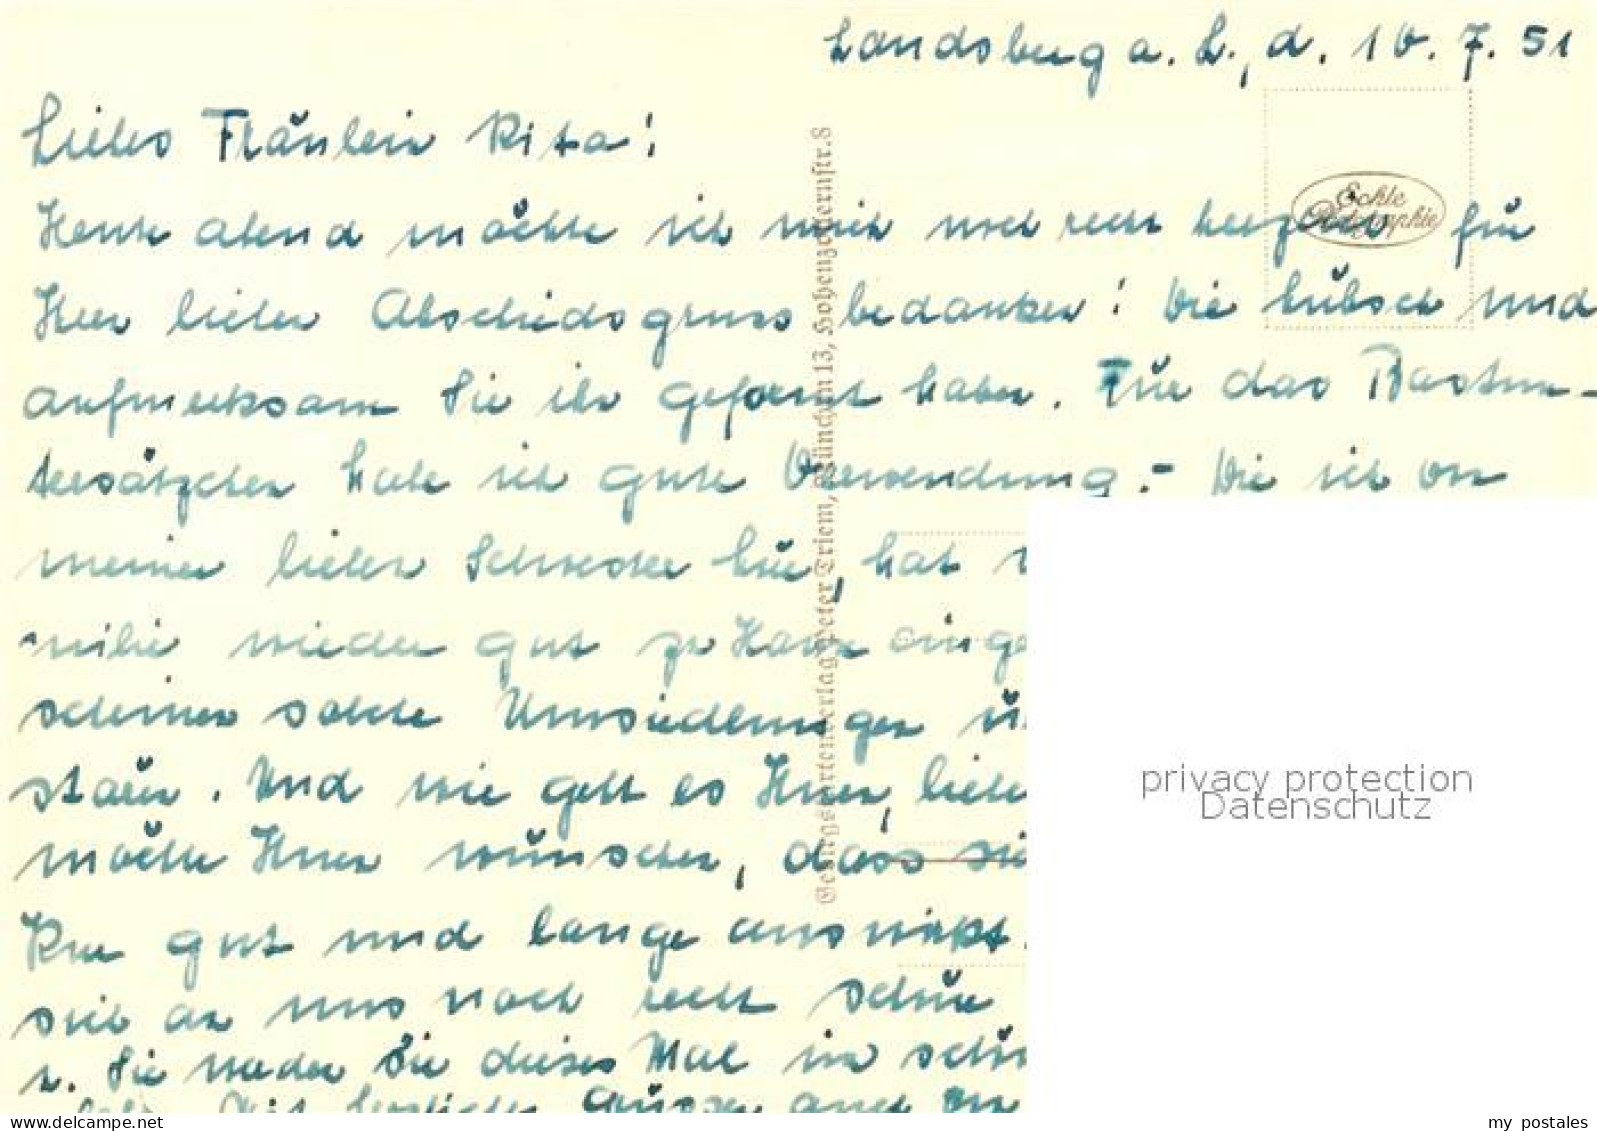 Landsberg a. L., d. 10. 7. 51
Liebes Fräulein Rita!
Heute abend möchte ich mich noch recht herzlich für
Ihren lieben Abschiedsgruss bedanken! Wie hübsch und
aufmerksam Sie ihn geformt haben. Für das
habe ich gute Verwendung. - Wie ich von
meiner lieben Schwester hör, hat
milie wieder gut zu Hause einge
scheinen solche Umsiedlungen ü
. Und wie geht es Ihnen, liebe
möchte Ihnen wünschen, dass sie
Kur gut und lange auswirkt.
sich an uns noch recht schön
n. Sie werden Sie dieses Mal in schö
Mit herzlichen Grüssen auch von
Echte Photographie
Gebirgskartenverlag Peter Triem, München 13, Hohenzollernstr. 8
privacy protection
Datenschutz
delcampe.net
my_postales